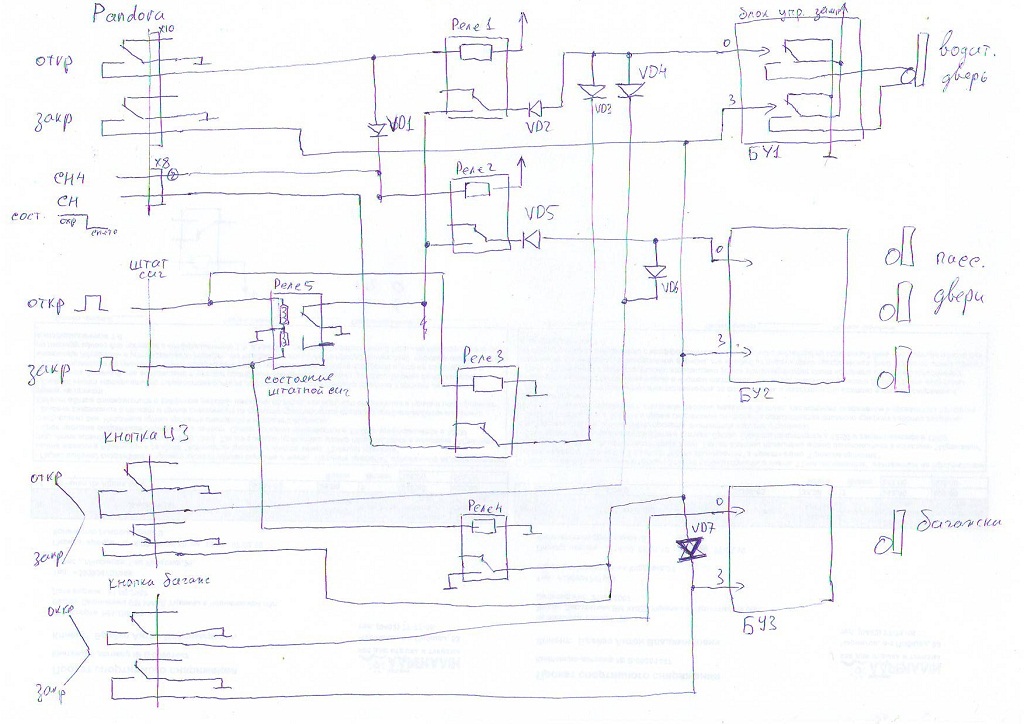 Pandora
X10
откр
закр
X8
2
СН4
СН
сост.
охр
снято
штат
сиг
откр
закр
Реле 1
VD1
VD2
VD3
VD4
Реле 2
VD5
VD6
Реле 5
состояние
штатной сиг
Реле 3
Реле 4
VD7
блок упр. замк
О
З
БУ1
водит.
дверь
О
З
БУ2
пасс.
двери
О
З
БУ3
багажник
кнопка ЦЗ
откр
закр
кнопка багаж
откр
закр